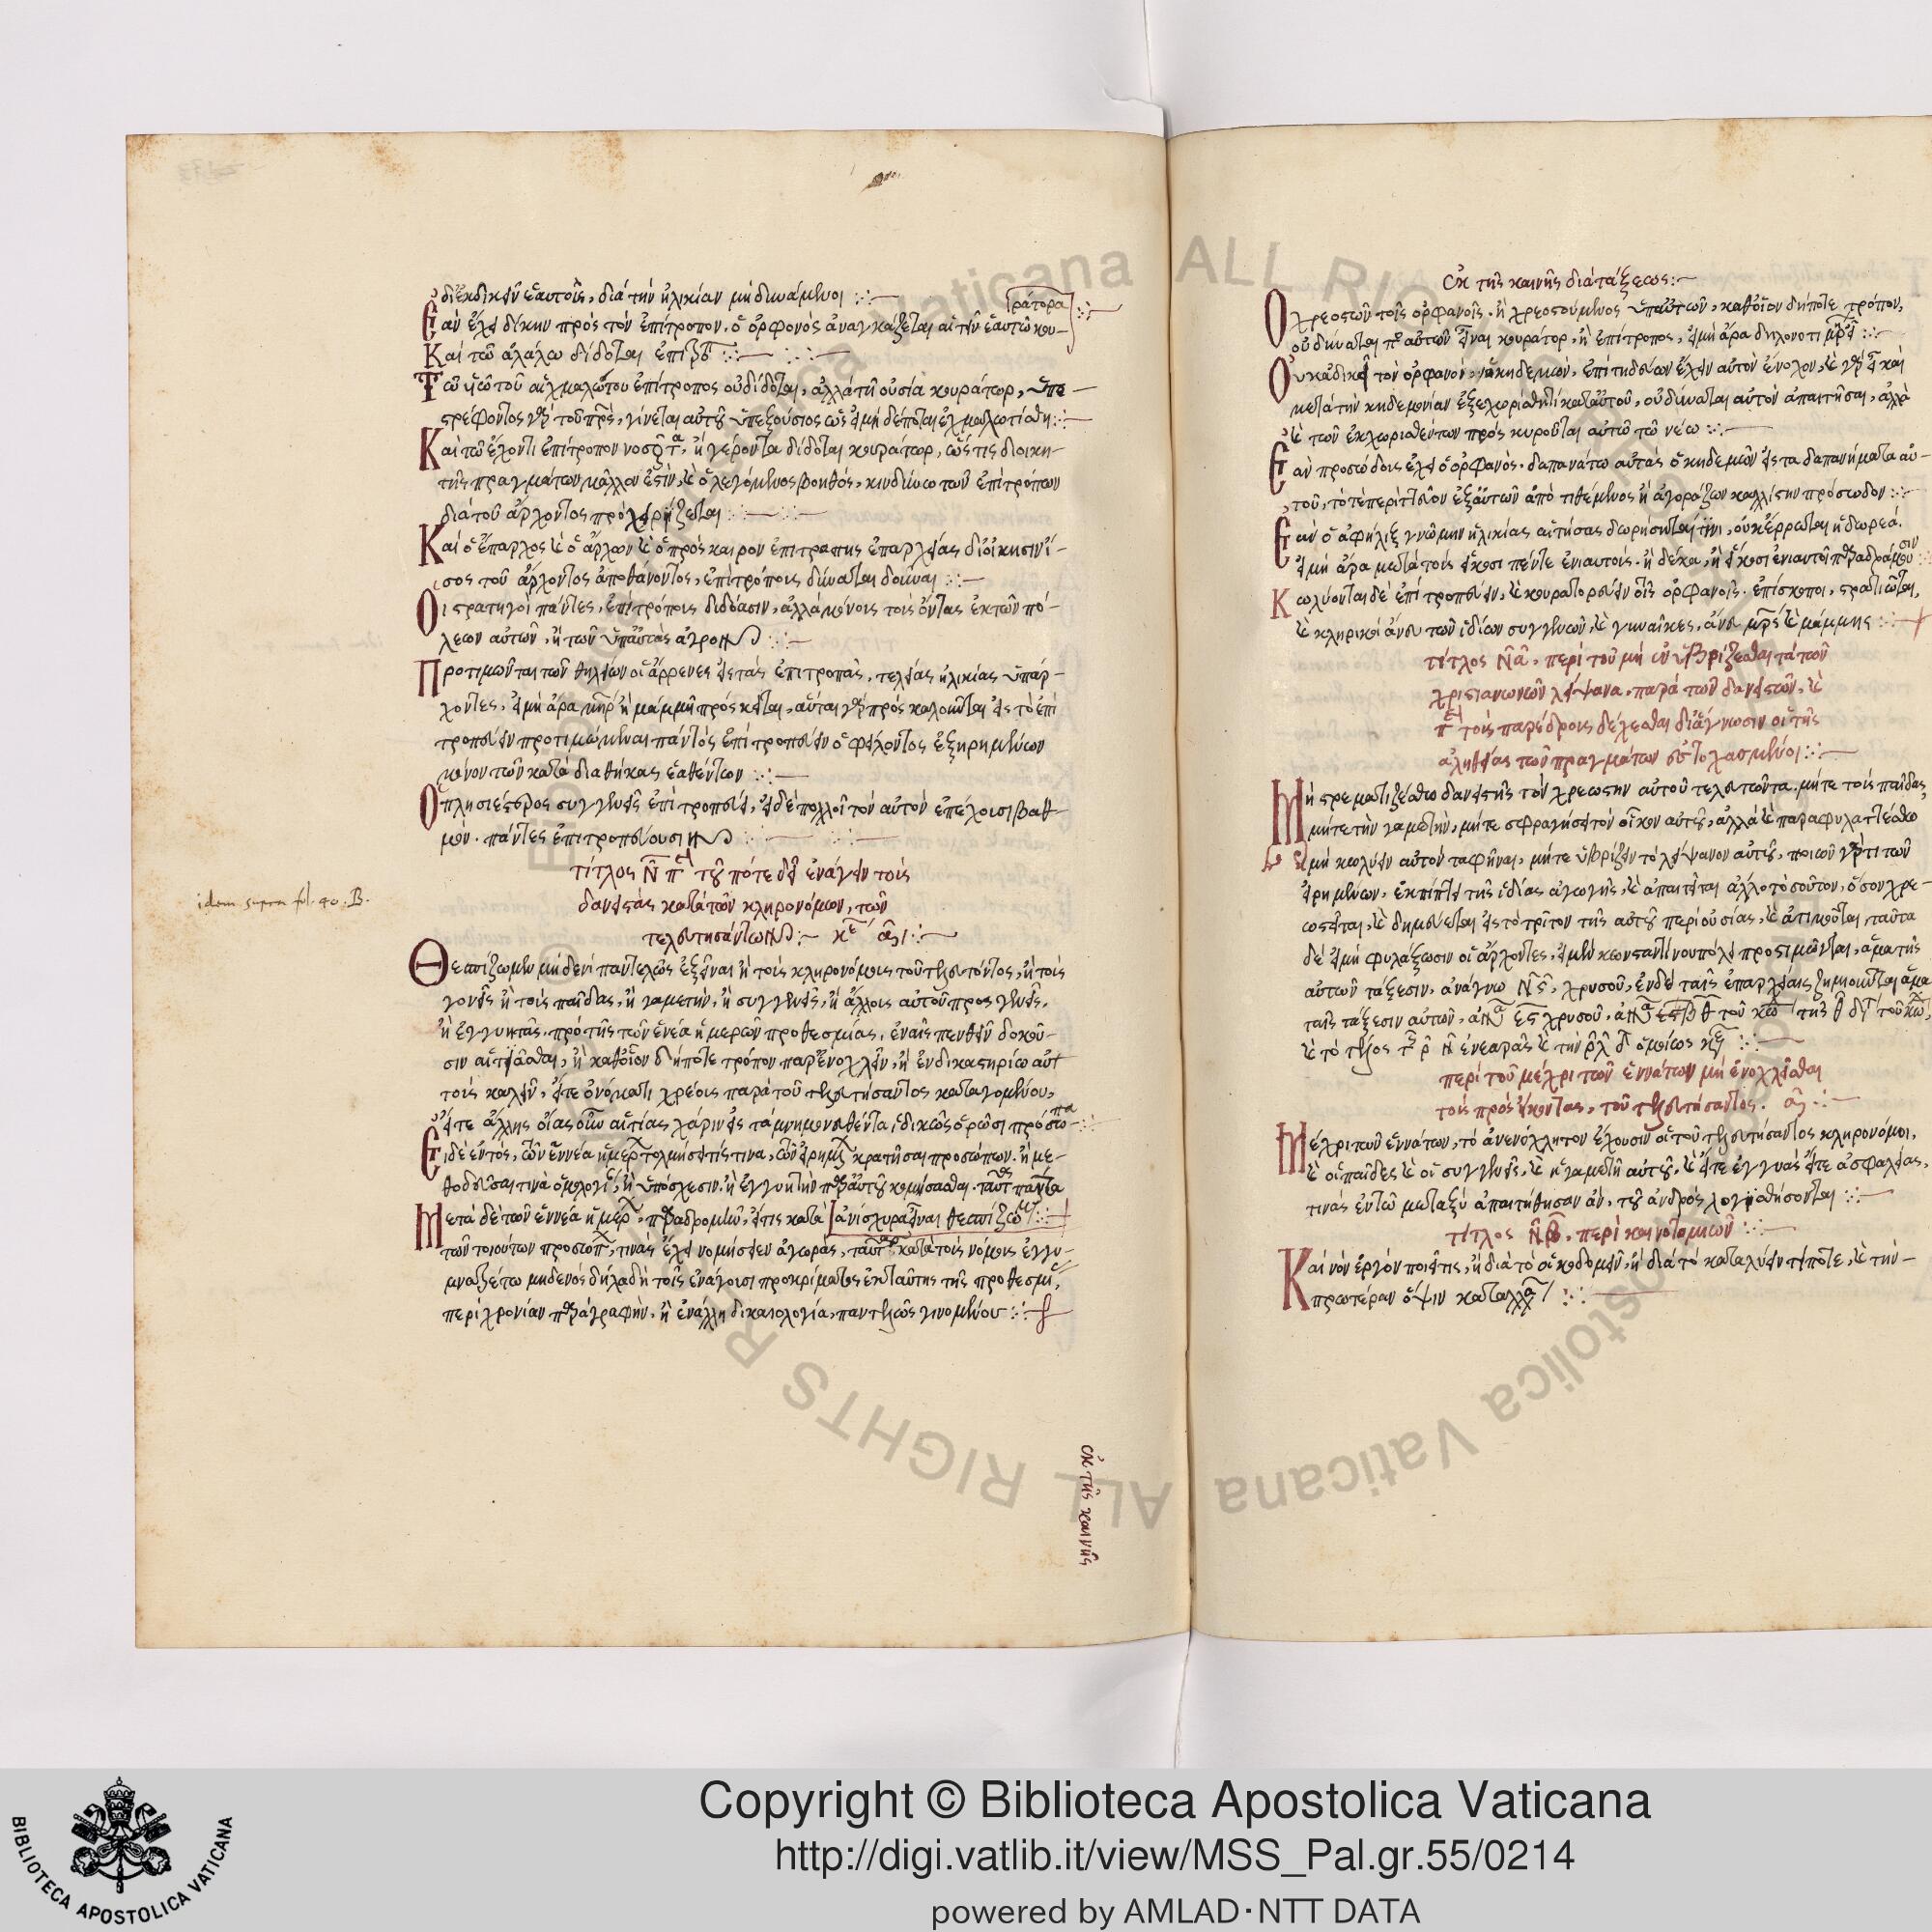 διεκδικεῖν ἑαυτοῖς, διὰ τὴν ἡλικίαν μὴ δυνάμενοι
Ἐὰν ἔχει δίκην πρὸς τὸν ἐπίτροπον, ὁ ὀρφονὸς ἀναγκάζεται αἰτεῖν ἑαυτῶ κου-
ράτορα
Καὶ τῶ ἀλάλω δίδοται
Τῶ υἱῶ τοῦ αἰχμαλώτου ἐπίτροπος οὐ δίδοται, ἀλλὰ τῆ οὐσία κουράτωρ, ὑπο-
στρέφοντος γὰρ τοῦ πρς, γίνεται αὐτοῦ ὑπεξούσιος ὡς εἰ μὴ δέποται
Καὶ τῶ ἔχοντι ἐπίτροπον ἢ γέροντα δίδοται κουράτωρ, ὥς τις διοικη-
τὴς πραγμάτων μᾶλλον ἐστὶν, καὶ ὁ λεγόμενος βοηθός, κινδύνω τῶν ἐπιτρόπων
διὰ τοῦ ἄρχοντος προχειρίζεται
Καὶ ὁ ἔπαρχος καὶ ὁ ἄρχων καὶ ὁ πρὸς καιρον ἐπιτραπης ἐπαρχείας διοίκησιν ἴ-
σος τοῦ ἄρχοντος ἀποθάνοντος, ἐπιτρόποις δύναται δοῦναι
Οἱ στρατηγοὶ πάντες, ἐπιτρόποις διδόασιν, ἀλλὰ μόνοις τοῖς ὄντας ἐκ τῶν πό-
λεων αὐτῶν, ἢ τῶν ὑπ' αὐτὰς ἀγρον
Προτιμῶνται τῶν θηλείων οἱ ἄρρενες εἰς τὰς ἐπιτροπὰς, τελείας ἡλικίας ὑπάρ-
χοντες, εἰ μὴ ἄρα μηρ ἢ μάμμη πρόσκειται, αὗται γὰρ πρὸς καλοῦνται εἰς τὸ ἐπι
τροπεύειν προτιμώμεναι παντὸς ἐπιτροπεύειν ὀφείλοντος ἐξηρημένων
μόνον τῶν κατὰ διαθήκας ἐαθέντων
Ὁ πλησιέστερος συγγενεῖς ἐπιτροπεύει, εἰ δὲ πολλοὶ τὸν αὐτὸν ἐπέχοισι βαθ-
μὸν, πάντες ἐπιτροπεύουσιν
τίτλος Ν περὶ τοῦ πότε δεῖ ἐνάγειν τοῖς
δανειστὰς κατὰ τῶν κληρονόμων, τῶν
τελευτησάντων
idem supra fol. 40. B.
Θεσπίζωμεν μηδενὶ παντελῶς ἐξεῖναι ἢ τοῖς κληρονόμοις τοῦ τελευτόντος, ἢ τοῖς
γονεῖς ἢ τοῖς παῖδας, ἢ γαμετὴν, ἢ συγγενεῖς, ἢ ἄλλοις αὐτοῦ προς γενεῖς,
ἢ ἐγγυητὰς, πρὸ τῆς τῶν ἐνέα ἡμερῶν προθεσμίας, ἐν αἷς πενθεῖν δοκοῦ-
σιν αἰτιᾶσθαι, ἢ καθοῖον δήποτε τρόπον παρενοχλεῖν, ἢ ἐν δικαστηρίω αὐ
τοὶς καλεῖν, εἴτε ὀνόματι χρέοις παρὰ τοῦ τελευτήσαντος καταγομένου,
εἴτε ἄλλης οἵας οὖν αἰτίας χάριν εἰς τὰ μνημονευθέντα ἰδικῶς ὁρῶσι πρόσω-
πα
Εἰ δὲ ἐντὸς, τῶν ἐννέα ἡμερ τολμήσει τίς τινα, τῶν εἰρημ κρατῆσαι προσώπων, ἢ με-
θοδεῦσαι τινὰ ὁμολογί, ἢ ὑπόσχεσιν, ἢ ἐγγυητὴν παρ' αὐτοῦ κομήσασθαι, ταῦτ πάντα
ἀνίσχυρα εἶναι θεσπίζω
Μετὰ δὲ τῶν ἐννέα ἡμερ, παραδρομὴν, εἴτις κατὰ
τῶν τοιούτων προσώπ, τινὰς ἔχει νομήσειεν ἀγωγὰς, ταύτ κατὰ τοὶς νόμοις ἐγγυ-
μναζέτω μηδενὸς δηλαδὴ τοῖς ἐνάγοισι προκρίματος ἐκ ταύτης τῆς προθεσμί
περὶ χρονίαν παραγραφὴν, ἢ ἐν ἄλλη δικαιολογία, παντελῶς γινομένου
ἐκ τῆς καινῆς
ἐκ τῆς καινῆς διατάξεως
Ὁ χρεοστῶν τοῖς ὀρφανοῖς, ἢ χρεοστούμενος ὑπ' αὐτῶν, καθοῖον δήποτε τρόπον,
οὐ δύναται αὐτῶν εἶναι κουράτορ, ἢ ἐπίτροπος, εἰ μὴ ἄρα δηλονοτι
Οὐκ ἀδικεῖ τὸν ὀρφανὸν, κηδεμὼν, ἐπιτηδεύων ἔχειν αὐτὸν ἔνοχον, καὶ καὶ
μετὰ τὴν κηδεμονίαν ἐξεχωρίσθη τί κατ' αὐτοῦ, οὐ δύναται αὐτὸν ἀπαιτῆσαι, ἀλλὰ
καὶ τῶν ἐκχωρισθέντων πρὸς κυροῦται αὐτῶ τῶ νέω
Ἐὰν προσώδοις ἔχει ὁ ὀρφανὸς, δαπανάτω αὐτὰς ὁ κηδεμὼν εἰς τα δαπανήματα αὐ-
τοῦ, τὸ τὲ περιττεῦον ἐξ αὐτῶν ἀπὸ τιθέμενος ἢ ἀγοράζων καλλίστην πρόσωδον
Ἐὰν ὁ ἀφήλιξ γνώμην ἡλικίας αἰτήσας δωρήσηταί τινι, οὐκ ἔρρωται ἡ δωρεά.
εἰ μὴ ἄρα μετὰ τοὶς εἴκοσι πέντε ἐνιαυτοὶς, ἢ δέκα, ἢ εἴκοσι ἐνιαυτοὶ παραδράμου
σιν
Κωλύονται δὲ ἐπιτροπεύειν, καὶ κουρατορεύειν τοῖς ὀρφανοῖς, ἐπίσκοποι, στρατιῶται,
καὶ κληρικοὶ ἄνευ τῶν ἰδίων συγγενῶν, καὶ γυναῖκες, ἄνευ μρς καὶ μάμμης
τίτλος ΝΑ, περὶ τοῦ μὴ ἐνυβρίζεσθαι τὰ τῶν
χριστιανωνῶν λείψανα, παρὰ τῶν δανειστῶν, καὶ
περὶ τοὶς παρέδροις δέχεσθαι διάγνωσιν οἱ τῆς
ἀληθείας τῶν πραγμάτων ἐστοχασμένοι
Μὴ στρεματιζέσθω δανειστὴς τὸν χρεωστην αὐτοῦ τελευτῶντα, μήτε τοὶς παῖδας,
μήτε τὴν γαμετὴν, μήτε σφραγήσει τὸν οἶκον αὐτοῦ, ἀλλὰ καὶ παραφυλαττέσθω
μὴ κωλύειν αὐτὸν ταφῆναι, μήτε ὑβρίζειν τὸ λείψανον αὐτοῦ, ποιῶν γάρ τι τῶν
εἰρημένων, ἐκπίπτει τῆς ἰδίας ἀγωγῆς, καὶ ἀπαιτεῖται ἀλλο τοσοῦτον, ὅσον χρε-
ωστεῖται, καὶ δημεύεται εἰς τὸ τρῖτον τῆς αὐτοῦ περιουσίας, καὶ ἀτιμοῦται, ταῦτα
δὲ εἰ μὴ φυλάξωσιν οἱ ἄρχοντες, εἰ μὲν κωνσταντίνουπόλει προστιμῶνται, ἅμα τῆς
αὐτῶν τάξεσιν, ἀνάγνω χρυσοῦ, ἐν δὲ ταῖς ἐπαρχείαις ζημιοῦνται ἅμα
ταῖς τάξεσιν αὐτῶν, χρυσοῦ,
καὶ τὸ τέλος ὁμοίως
περὶ τοῦ μέχρι τῶν ἐννάτων μὴ ἐνοχλεῖσθαι
τοὶς προσήκοντας, τοῦ τελευτήσαντος.
Μέχρι τῶν ἐννάτων, τὸ ἀνενόχλητον ἔχουσιν οἱ τοῦ τελευτήσαντος κληρονόμοι,
καὶ οἱ παῖδες καὶ οἱ συγγενεῖς, καὶ ἡ γαμετὴ αὐτοῦ, καὶ εἴτε ἐγγυὰς εἴτε ἀσφαλείας,
τινὰς ἐν τῶ μεταξὺ ἀπαιτήθησαν ἂν, τοῦ ἀνδρὸς λογισθήσονται
τίτλος ΝΒ, περὶ καινοτομιῶν
Καινὸν ἔργὸν ποιεῖ τις, ἢ διὰ τὸ οἰκοδομεῖν, ἢ διὰ τὸ καταλύειν τίποτε, καὶ τὴν-
πρωτέραν ὄψιν
Copyright © Biblioteca Apostolica Vaticana
http://digi.vatlib.it/view/MSS_Pal.gr.55/0214
powered by AMLAD·NTT DATA
BIBLIOTECA APOSTOLICA VATICANA